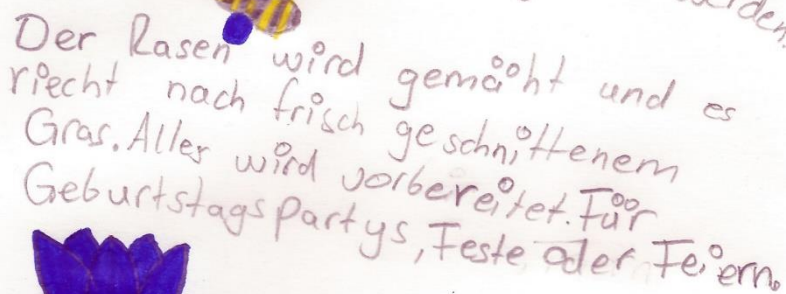 werden.
Der Rasen wird gemäht und es
riecht nach frisch geschnittenem
Gras. Alles wird vorbereitet. Für
Geburtstagspartys, Feste oder Feiern.